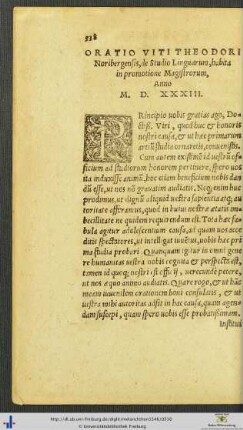 338
ORATIO VITI THEODORI
Noribergensis, de Studio Linguarum, habita
in promotione Magistrorum,
Anno
M. D. XXXIII.
PRincipio uobis gratias ago, Do-
ctiss. Viri, quòd huc & honoris
nostri causa, & ut hæc primarum
artiũ studia ornaretis, conuenistis.
Cum autem existimē id uestri of-
ficium ad studiorum honorem pertinere, spero uos
ita induxisse animũ, hac etiam beneficium nobis dan
dũ esse, ut nos nõ grauatim audiatis. Neq; enim huc
prodimus, ut dignũ aliquid uestra sapientia atq; au
toritate afferamus, quod in hatas nostræ ætatis im
becillitate ne quidem requirendum est. Tota hæc fa
bula agitur adolescentum causa, ad quam uos acce
ditis spectatores, ut intelligat iuuētus, uobis hæc pri
ma studia probari. Quanquam igitur in omni gene
re humanitas uestra nobis cognita & perspecta est,
tamen id quoq; nostri est officij, uerecundè petere,
ut nos æquo animo audiatis. Quare rogo, & ut hāc
meam iuuenilem orationem boni consulatis, & ut
uestra mihi autoritas adsit in hac causa, quam agen-
dam suscepi, quam spero uobis esse probatissimam.
Institui
http://dl.ub.uni-freiburg.de/diglit/melanchthon1541/0350
© Universitätsbibliothek Freiburg